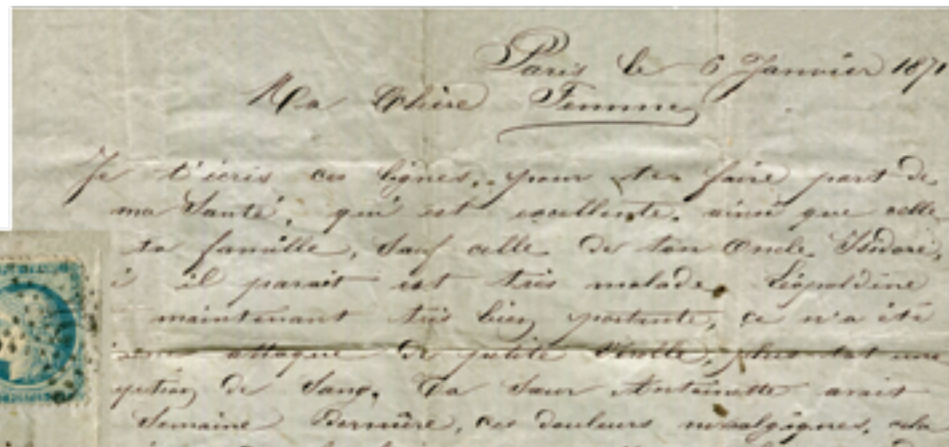 Paris le 6 Janvier 1871
Ma Chère Femme,
Je t'écris ces lignes, pour te faire part de
ma Santé, qui est excellente, ainsi que celle
ta famille, Sauf celle de ton Oncle Isidore,
il parait est très malade, Léopoldine
maintenant très bien portante, ce n'a été
attaque de petite plus tot une
de Sang, Ta Sœur Antoinette avait
Semaine Dernière, ces douleurs cela